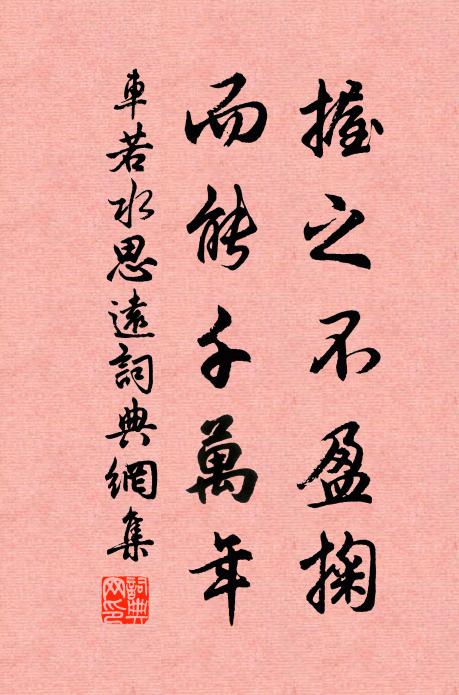 握之不盈掬
而能千萬年
車若水思遠詞典網集
詞典網印